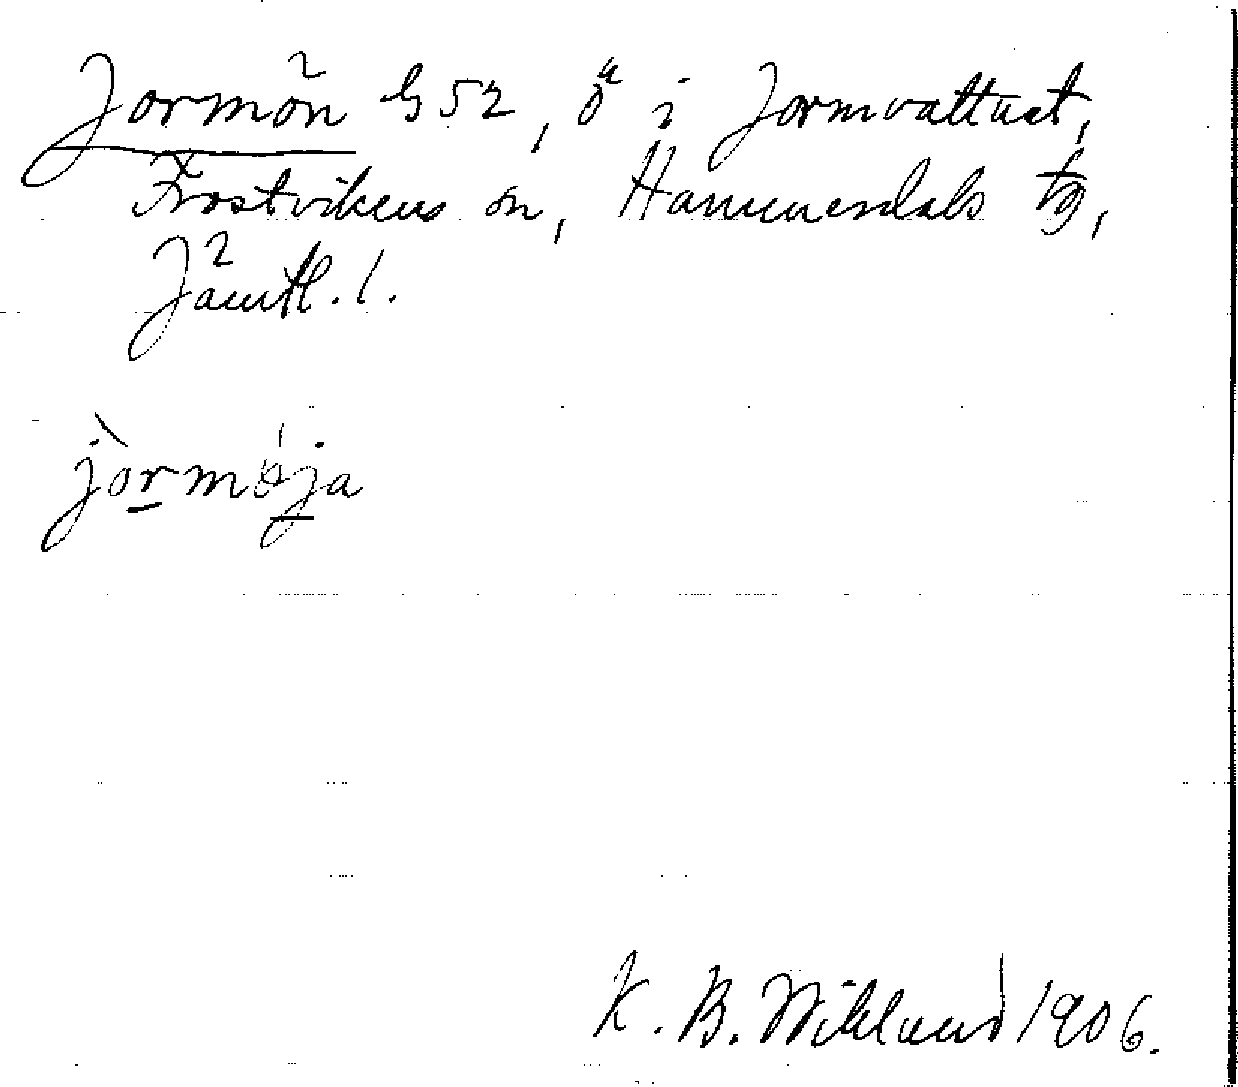 Jormön G 52, ö i Jormvattnet,
Frostvikens sn, Hammerdals tg,
Jämtl. l.
jòrmǿja
K. B. Wiklund 1906.